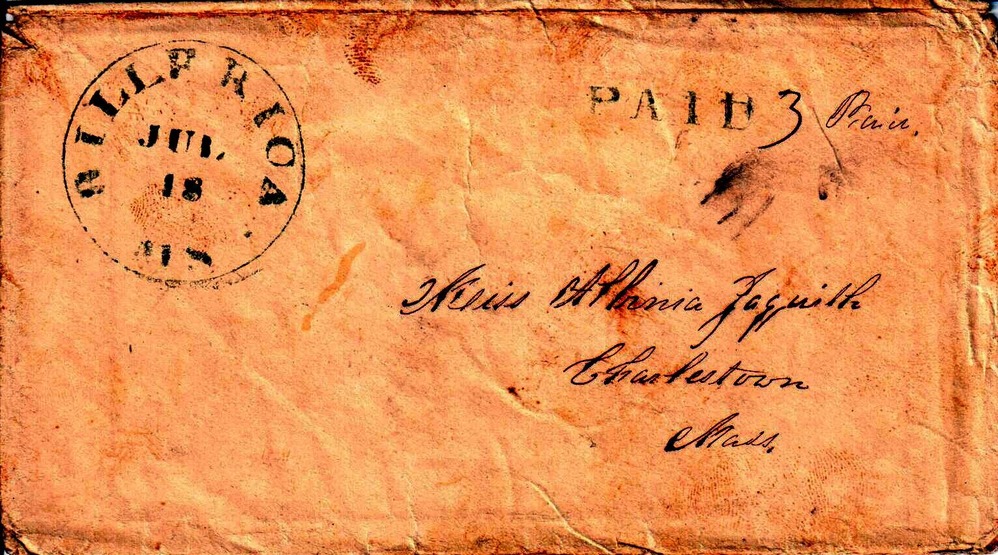 BILLERICA
JUL
18
MS
PAID 3 Paid.
Miss Albinia Jaquith
Charlestown
Mass.